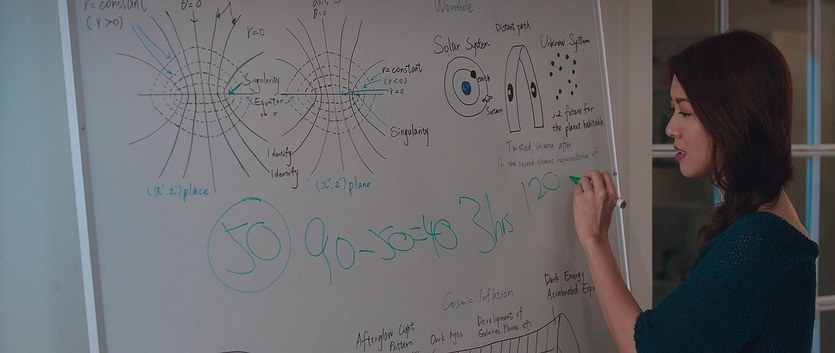 r = constant
(r>0)
θ=0
r=0
axis
θ=0
Singularity
Equator
r=constant
(r<0)
r=0
Singularity
Identify
Identify
(x',z')place
(x',z')plane
Wormhole
Solar System
Earth
Saturn
Distant path
Unknow System
future for
the planet habitable
50 90-50=40 3hrs 120
Cosmic Inflation
Afterglow Light
Pattern
Dark Ages
Development of
Galaxies, Planets etc
Dark Energy
Accelerated